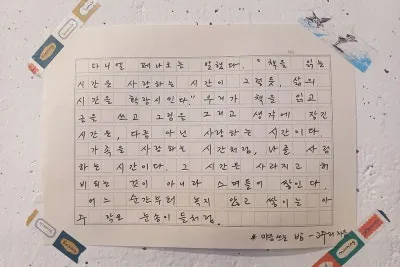 다니엘 페나크는 말했다. "책을 읽는
시간은 사랑하는 시간이 그렇듯, 삶의
시간을 확장시킨다." 우리가 책을 읽고
글을 쓰고 그림을 그리고 생각에 잠긴
시간은, 다름 아닌 사랑하는 시간이다.
가족을 사랑하는 시간처럼, 나를 사랑
하는 시간이다. 그 시간은 사라지고 허
비되는 것이 아니라 스며들어 쌓인다.
어느 순간부터 녹지 않고 쌓이는 아
주 작은 눈송이들처럼.
마음 쓰는 밤 -